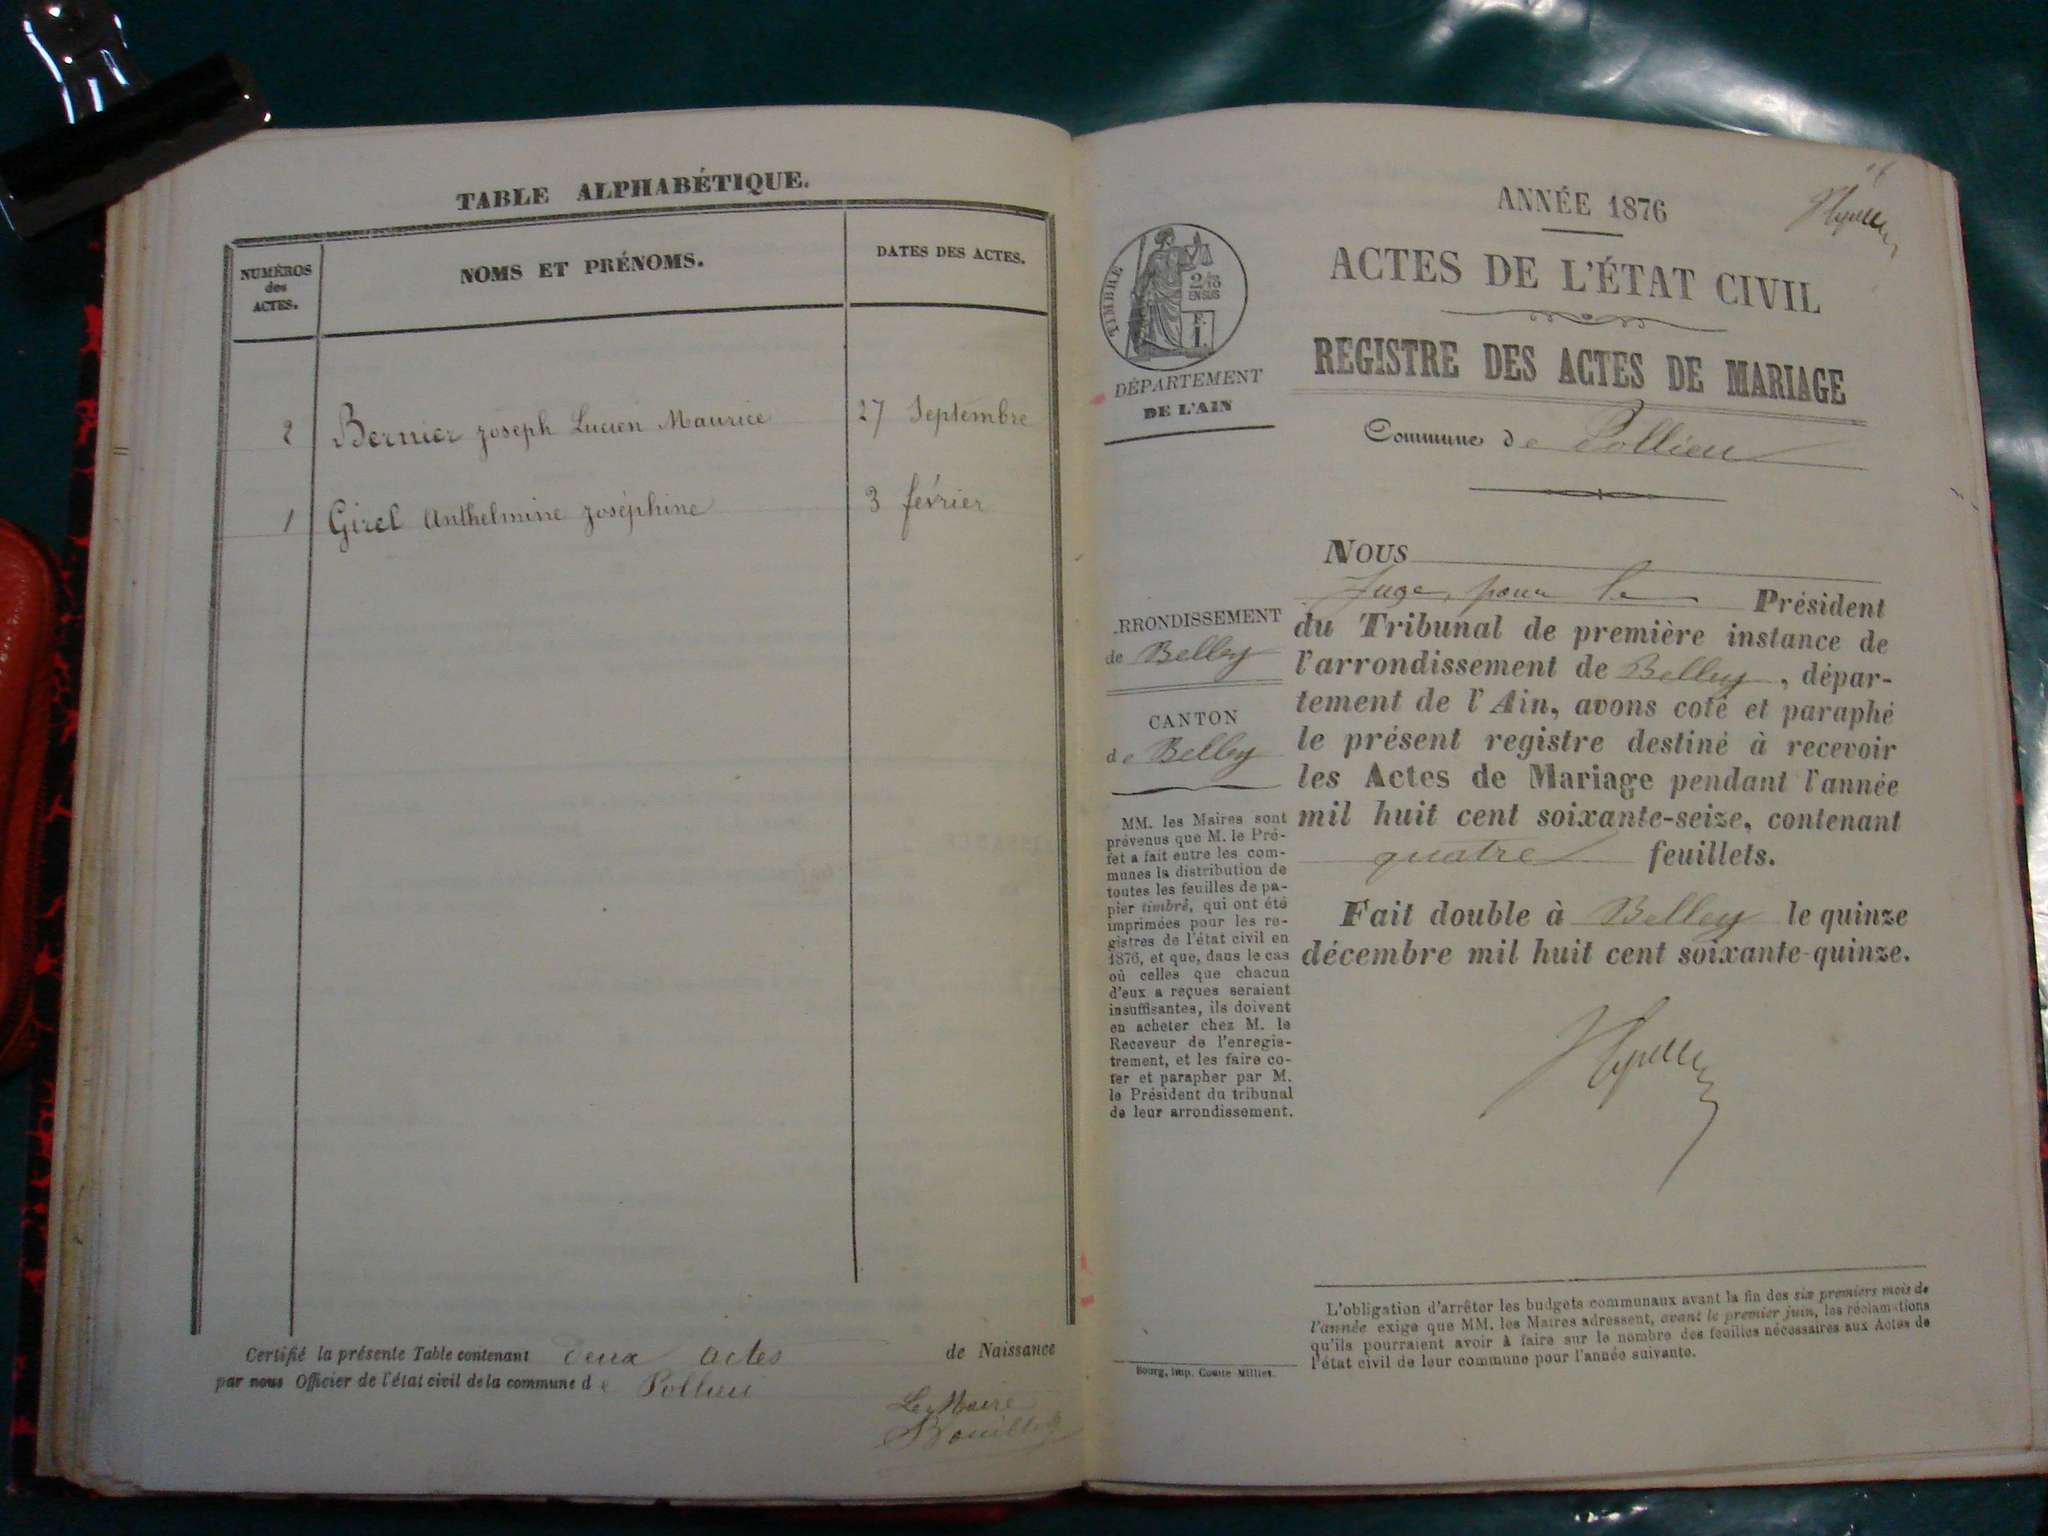 TABLE ALPHABÉTIQUE.
NUMÉROS
des
ACTES.
NOMS ET PRÉNOMS.
DATES DES ACTES.
2 Bernier Joseph Lucien Maurice 27 Septembre
1 Girel Anthelmine Joséphine 3 février
Certifié la présente Table contenant deux actes de Naissance
par nous Officier de l'état civil de la commune de Pollieu
Le Maire
ANNÉE 1876
ACTES DE L'ÉTAT CIVIL
REGISTRE DES ACTES DE MARIAGE
Commune de Pollieu
TIMBRE
2/10
EN SUS
F.
1.
DÉPARTEMENT
DE L'AIN
RRONDISSEMENT
de Belley
CANTON
de Belley
MM. les Maires sont
prévenus que M. le Pré-
fet a fait entre les com-
munes la distribution de
toutes les feuilles de pa-
pier timbré, qui ont été
imprimées pour les re-
gistres de l'état civil en
1876, et que, dans le cas
où celles que chacun
d'eux a reçues seraient
insuffisantes, ils doivent
en acheter chez M. le
Receveur de l'enregis-
trement, et les faire co-
ter et parapher par M.
le Président du tribunal
de leur arrondissement.
Bourg, imp. Comte-Milliet.
NOUS
Juge, pour le Président
du Tribunal de première instance de
l'arrondissement de Belley, dépar-
tement de l'Ain, avons coté et paraphé
le présent registre destiné à recevoir
les Actes de Mariage pendant l'année
mil huit cent soixante-seize, contenant
quatre feuillets.
Fait double à Belley le quinze
décembre mil huit cent soixante-quinze.
L'obligation d'arrêter les budgets communaux avant la fin des six premiers mois de
l'année exige que MM. les Maires adressent, avant le premier juin, les réclamations
qu'ils pourraient avoir à faire sur le nombre des feuilles nécessaires aux Actes de
l'état civil de leur commune pour l'année suivante.